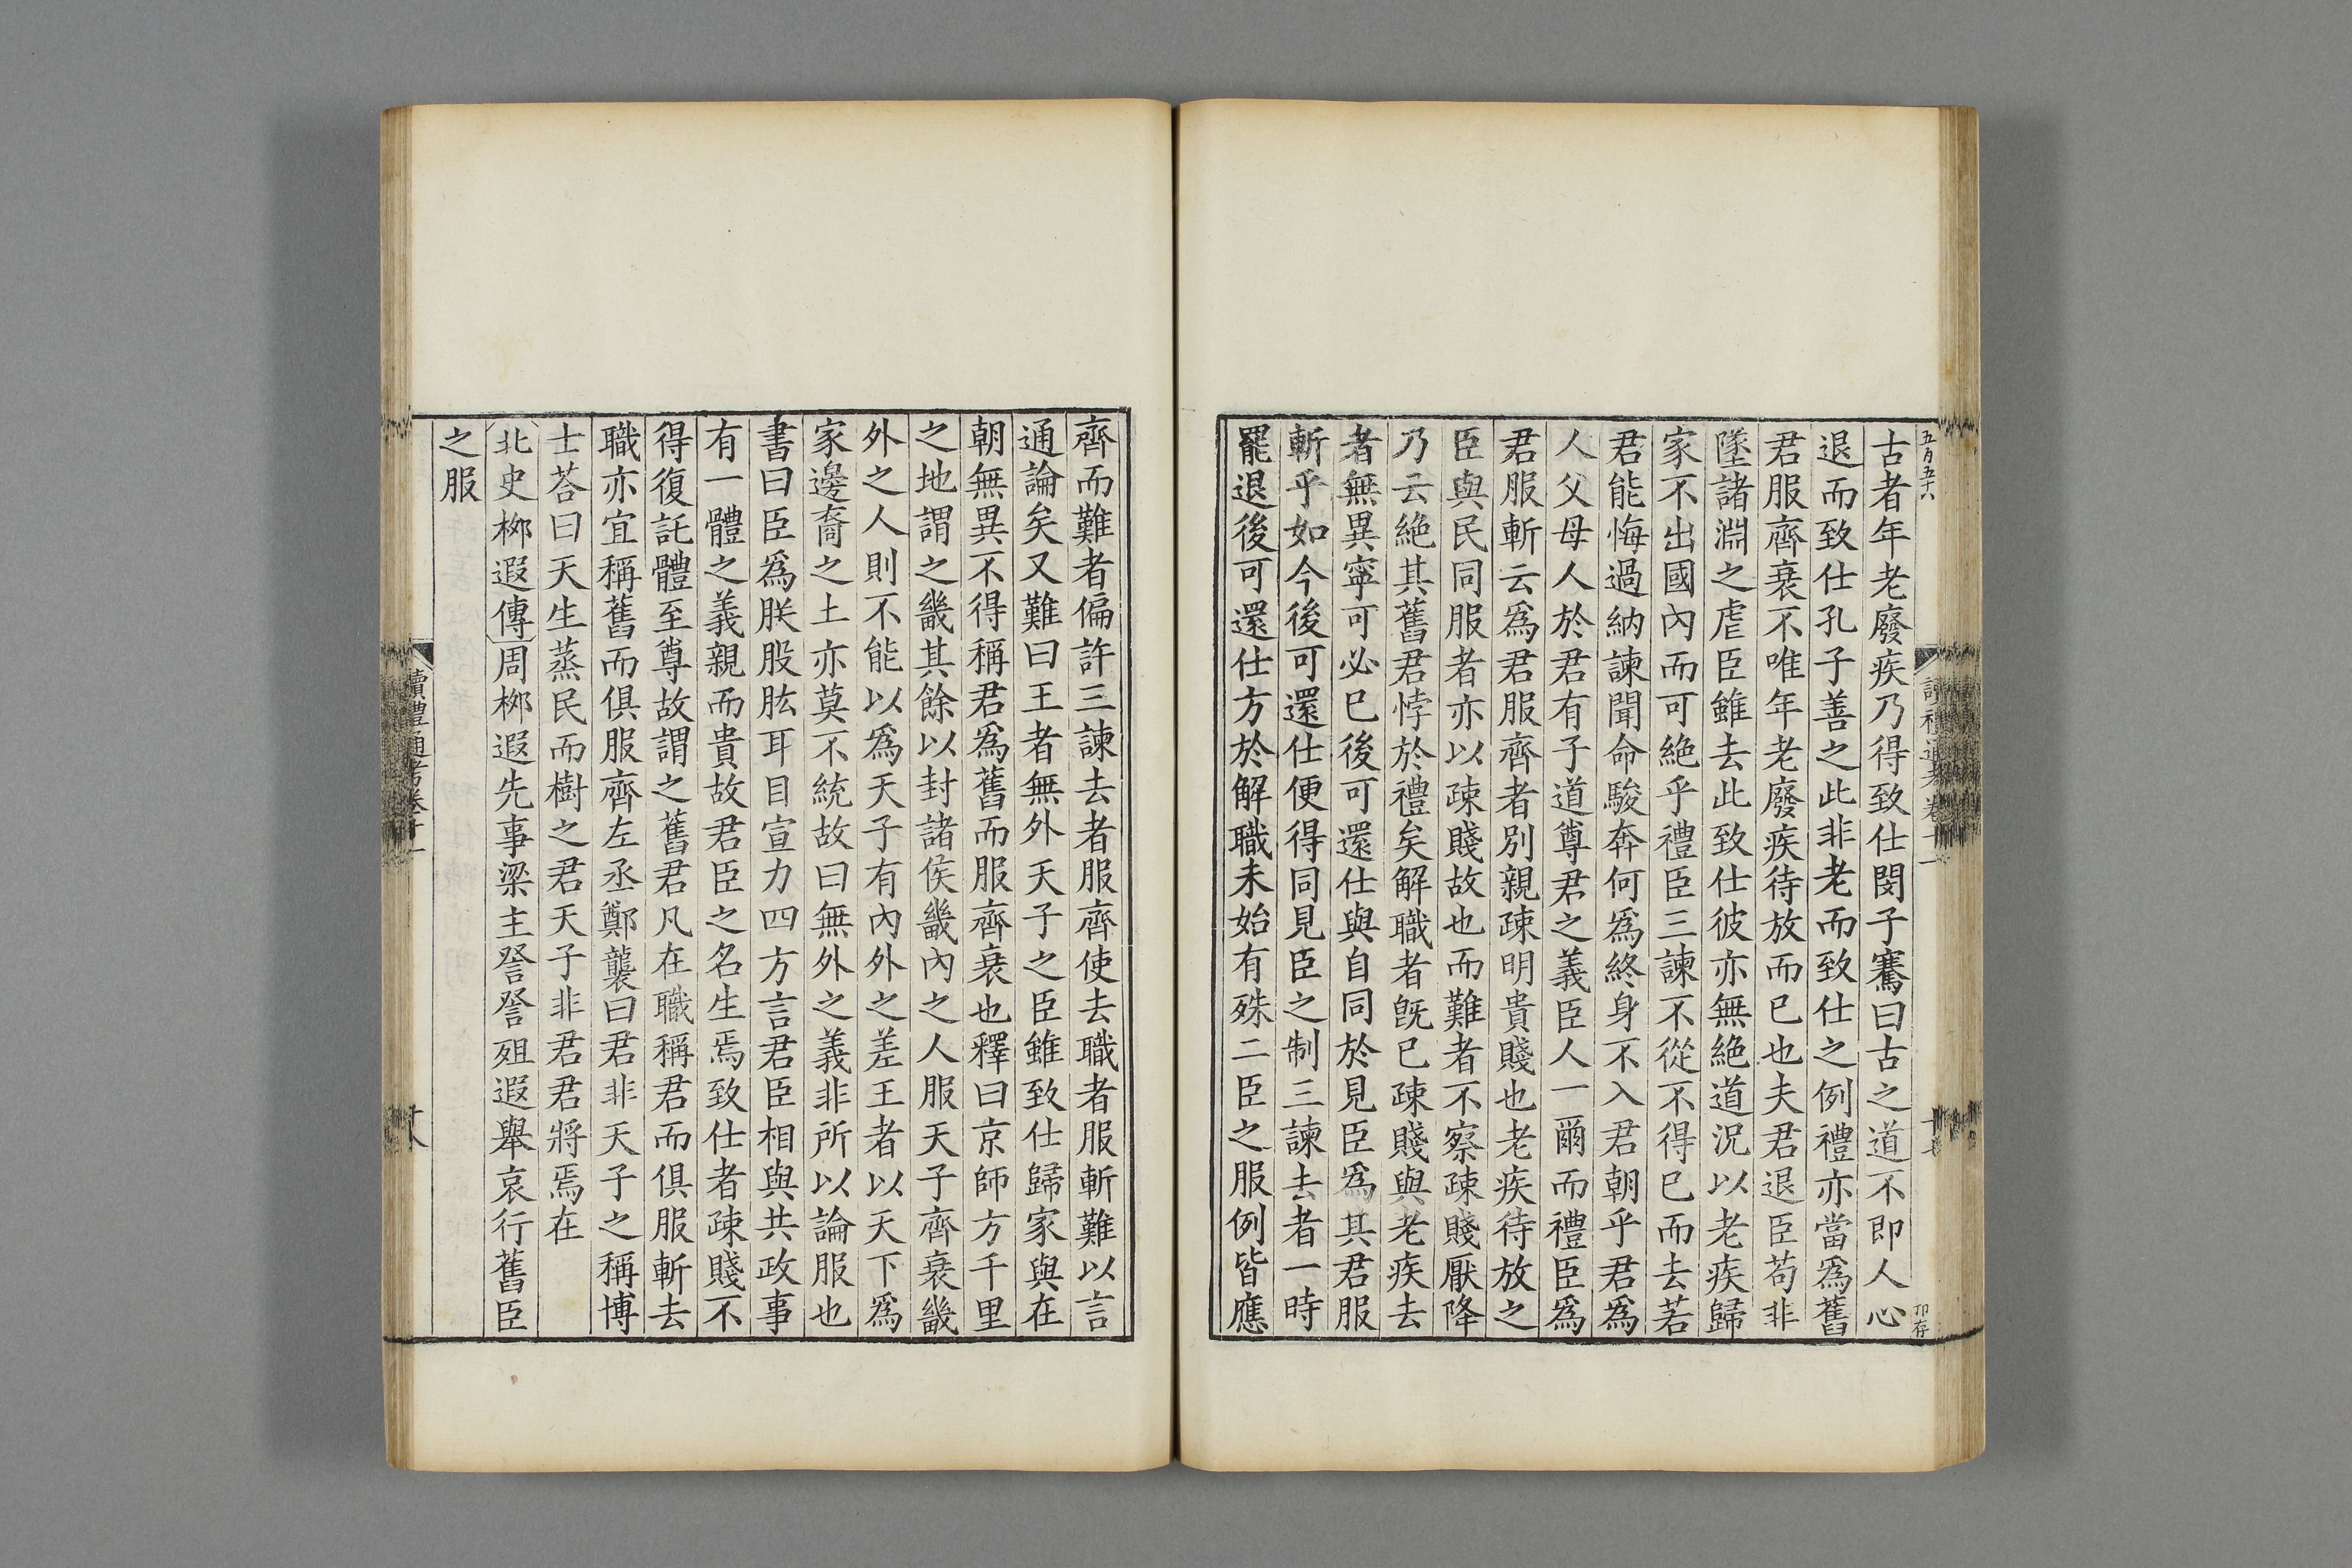 五百五十六
古者年老廢疾乃得致仕閔子騫曰古之道不即人心
退而致仕孔子善之此非老而致仕之例禮亦當爲舊
君服齊衰不唯年老廢疾待放而已也夫君退臣苟非
墜諸淵之虐臣雖去此致仕彼亦無絶道況以老疾歸
家不出國內而可絶乎禮臣三諫不從不得已而去若
君能悔過納諫聞命駿奔何爲終身不入君朝乎君爲
人父母人於君有子道尊君之義臣人一爾而禮臣爲
君服斬云爲君服齊者別親疎明貴賤也老疾待放之
臣與民同服者亦以疎賤故也而難者不察疎賤厭降
乃云絶其舊君悖於禮矣解職者旣已疎賤與老疾去
者無異寧可必已後可還仕與自同於見臣爲其君服
斬乎如今後可還仕便得同見臣之制三諫去者一時
罷退後可還仕方於解職未始有殊二臣之服例皆應
讀禮通考卷十一
十七
印存
齊而難者偏許三諫去者服齊使去職者服斬難以言
通論矣又難曰王者無外天子之臣雖致仕歸家與在
朝無異不得稱君爲舊而服齊衰也釋曰京師方千里
之地謂之畿其餘以封諸侯畿內之人服天子齊衰畿
外之人則不能以爲天子有內外之差王者以天下爲
家邊裔之土亦莫不統故曰無外之義非所以論服也
書曰臣爲朕股肱耳目宣力四方言君臣相與共政事
有一體之義親而貴故君臣之名生焉致仕者疎賤不
得復託體至尊故謂之舊君凡在職稱君而俱服斬去
職亦宜稱舊而俱服齊左丞鄭襲曰君非天子之稱博
士荅曰天生蒸民而樹之君天子非君君將焉在
北史桺遐傳周桺遐先事梁主詧詧殂遐舉哀行舊臣
之服
讀禮通考卷十一
十八